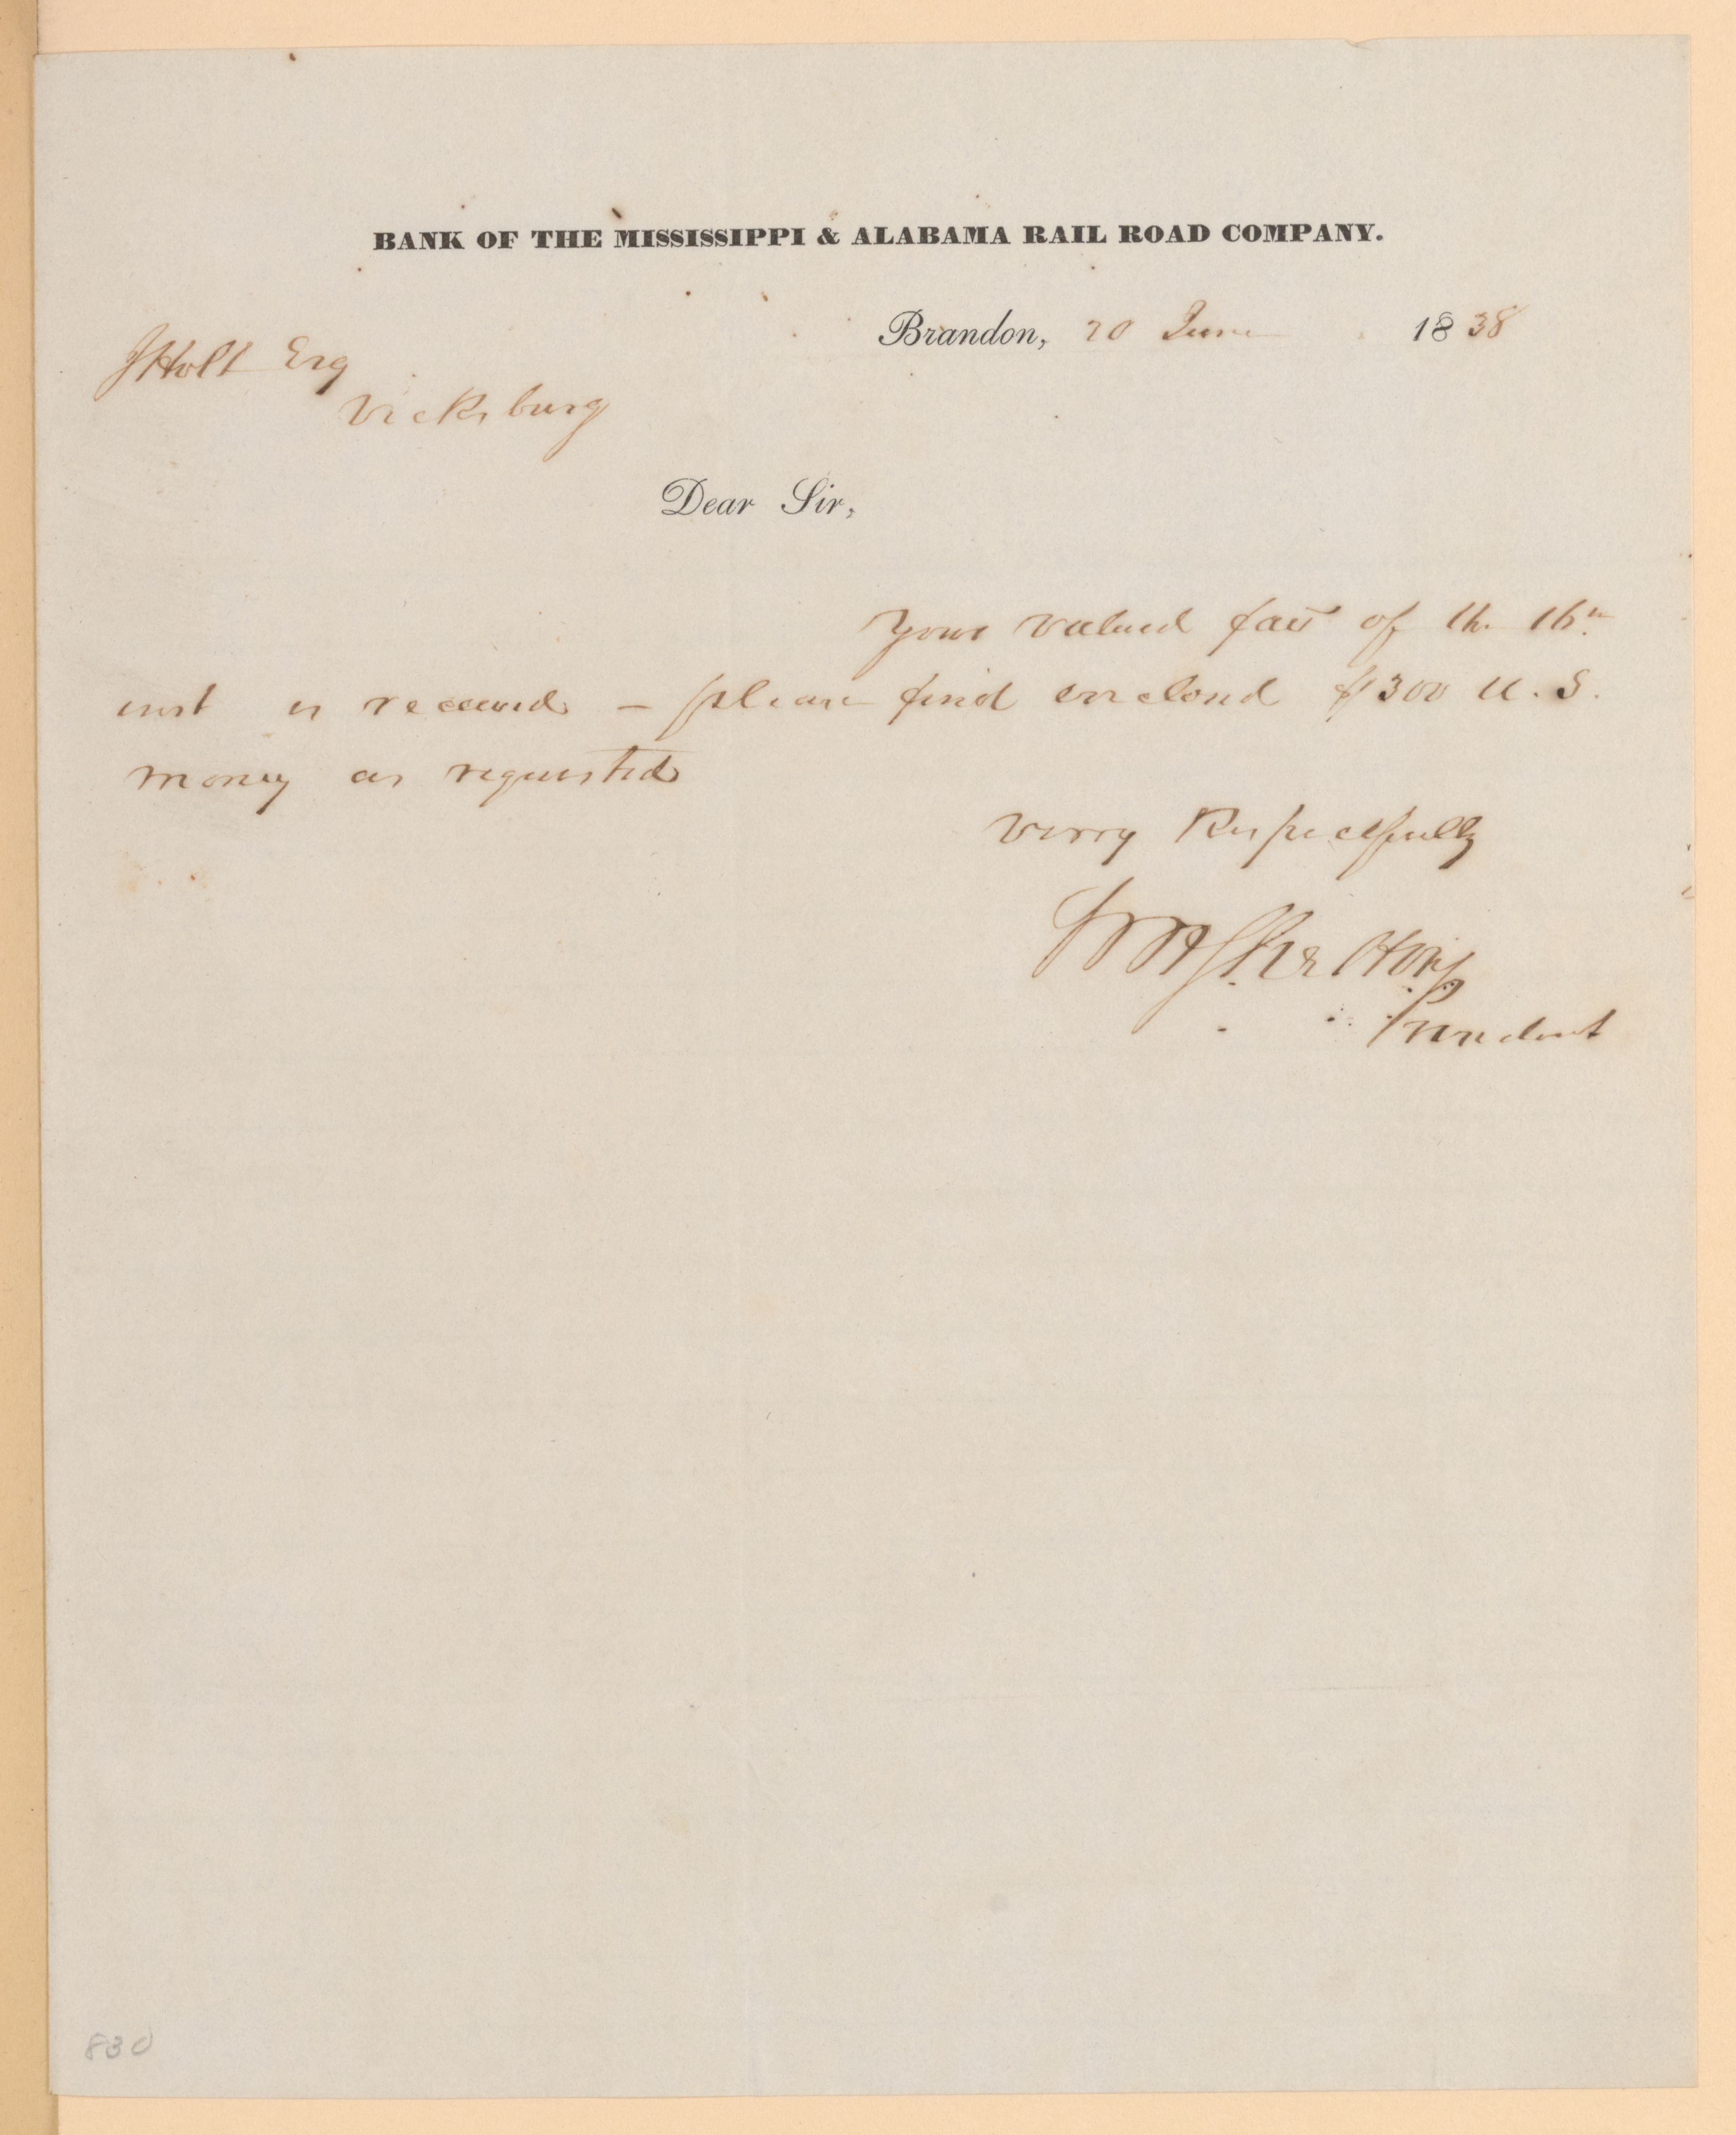 BANK OF THE MISSISSIPPI & ALABAMA RAIL ROAD COMPANY.
Brandon, 20 June 1838
J Holt Esq
Vicksburg
Dear Sir,
Your valued favr of the 16th
inst is received – please find enclosed $300 U.S.
money as requested
verry Respectfully
Wm H Shelton
President
830